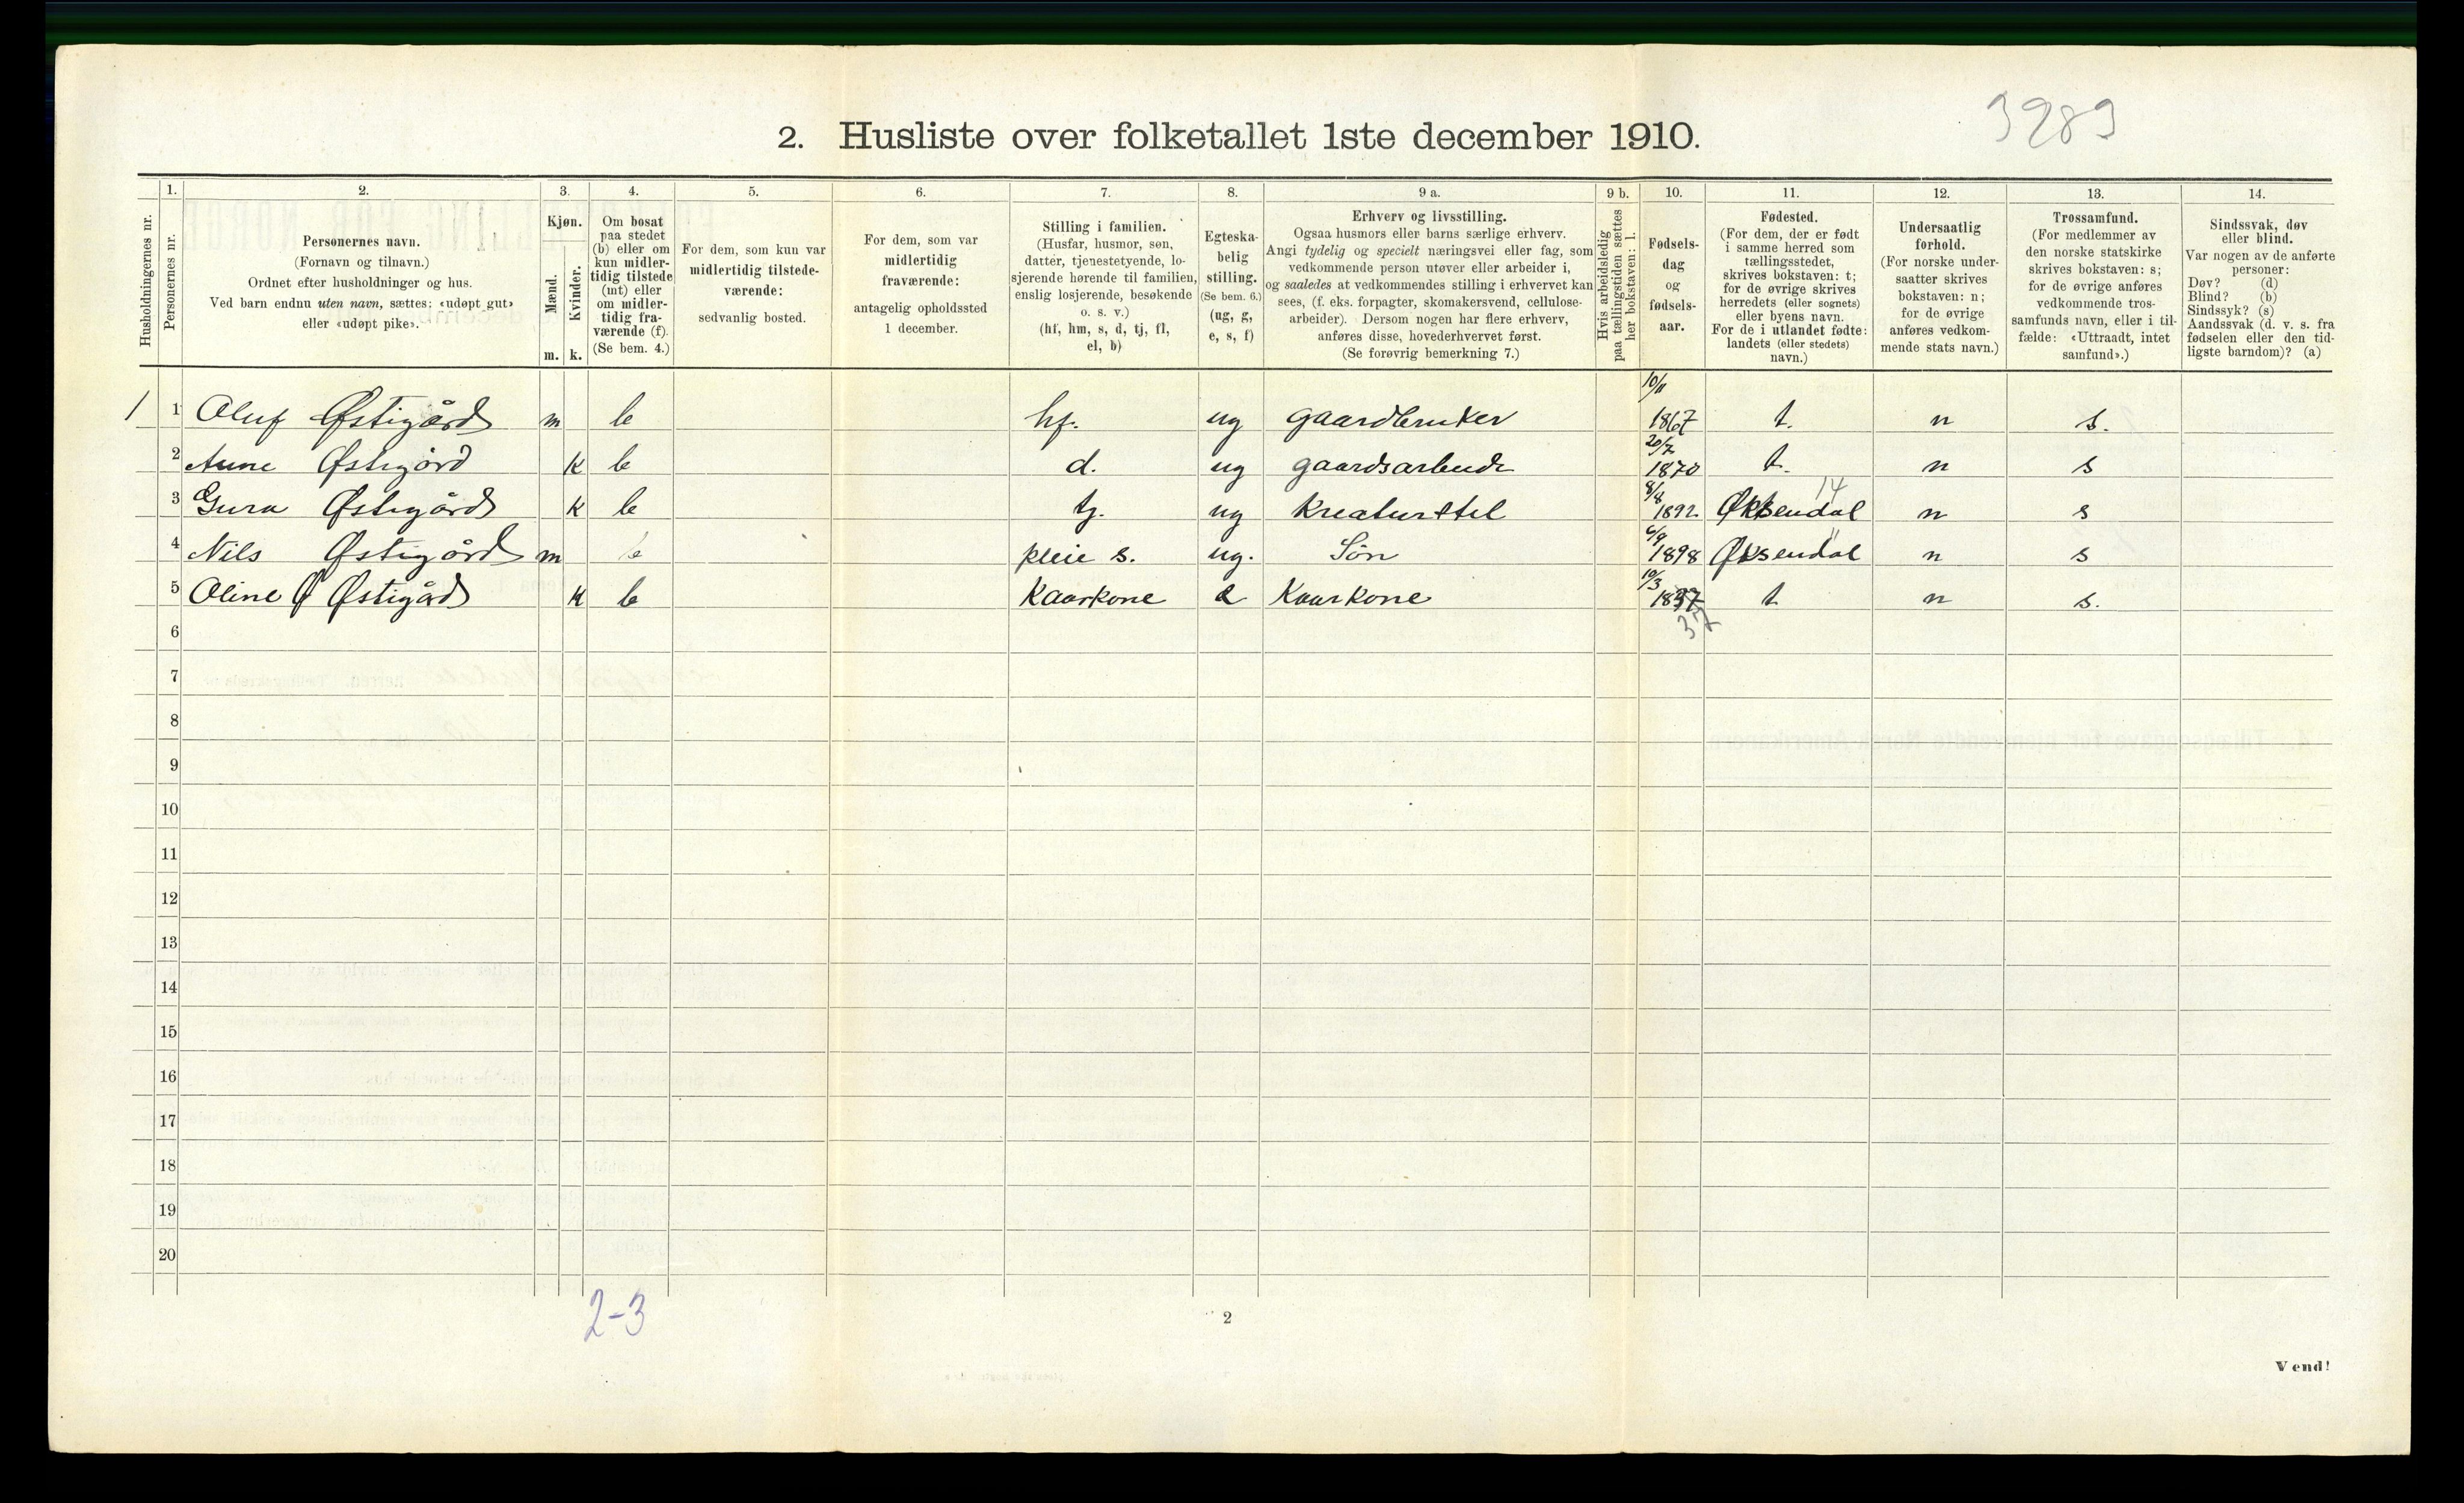 3283
2. Husliste over folketallet 1ste december 1910.
Husholdningernes nr.
1.
Personernes nr.
2.
Personernes navn.
(Fornavn og tilnavn.)
Ordnet efter husholdninger og hus.
Ved barn endnu uten navn, sættes: «udøpt gut»
eller «udøpt pike».
3.
Kjøn.
Mænd.
Kvinder.
m. k.
4.
Om bosat
paa stedet
(b) eller om
kun midler-
tidig tilstede
(mt) eller
om midler-
tidig fra-
værende (f).
(Se bem. 4.)
5.
For dem, som kun var
midlertidig tilstede-
værende:
sedvanlig bosted.
6.
For dem, som var
midlertidig
fraværende:
antagelig opholdssted
1 december.
7.
Stilling i familien.
(Husfar, husmor, søn,
datter, tjenestetyende, lo-
sjerende hørende til familien,
enslig losjerende, besøkende
o. s. v.)
(hf, hm, s, d, tj, fl,
el, b)
8.
Egteska-
belig
stilling.
(Se bem. 6.)
(ug, g,
e, s, f)
9 a.
Erhverv og livsstilling.
Ogsaa husmors eller barns særlige erhverv.
Angi tydelig og specielt næringsvei eller fag, som
vedkommende person utøver eller arbeider i,
og saaledes at vedkommendes stilling i erhvervet kan
sees, (f. eks. forpagter, skomakersvend, cellulose-
arbeider). Dersom nogen har flere erhverv,
anføres disse, hovederhvervet først.
(Se forøvrig bemerkning 7.)
9 b.
Hvis arbeidsledig
paa tællingstiden sættes
her bokstaven: l.
10.
Fødsels-
dag
og
fødsels-
aar.
11.
Fødested.
(For dem, der er født
i samme herred som
tællingsstedet,
skrives bokstaven: t;
for de øvrige skrives
herredets (eller sognets)
eller byens navn.
For de i utlandet fødte:
landets (eller stedets)
navn.)
12.
Undersaatlig
forhold.
(For norske under-
saatter skrives
bokstaven: n;
for de øvrige
anføres vedkom-
mende stats navn.)
13.
Trossamfund.
(For medlemmer av
den norske statskirke
skrives bokstaven: s;
for de øvrige anføres
vedkommende tros-
samfunds navn, eller i til-
fælde: «Uttraadt, intet
samfund».)
14.
Sindssvak, døv
eller blind.
Var nogen av de anførte
personer:
Døv? (d)
Blind? (b)
Sindssyk? (s)
Aandssvak (d. v. s. fra
fødselen eller den tid-
ligste barndom)? (a)
1 1 Oluf Østigård m b hf. ug gaardbruker 10/11 1867 t. n s.
2 Anne Østigård k b d. ug gaardsarbeide 20/7 1870 t. n s
14
3 Gura Østigård k b tj. ug Kreaturstel 8/8 1892 Øksendal n s
4 Nils Østigård m b pleie s. ug. Sön 6/9 1898 Øksendal " n s
5 Oline Ø Østigård k b Kaarkone e Kaarkone 10/3 1837 t n s.
37
6
7
8
9
10
11
12
13
14
15
16
17
18
19
20
2-3
2
Vend!